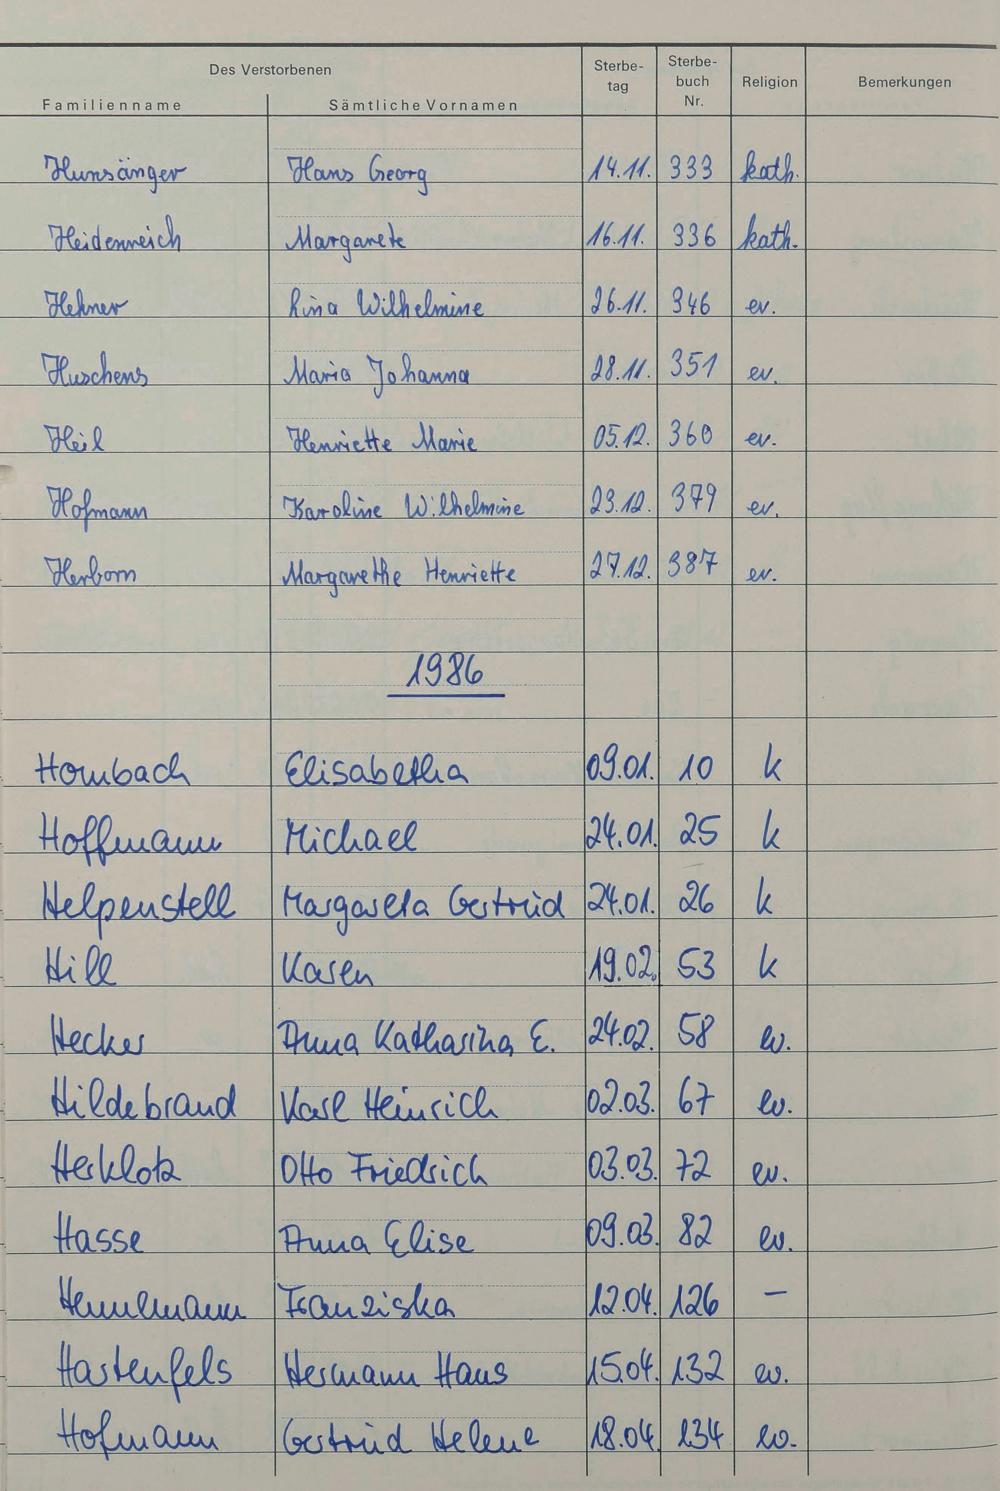 Des Verstorbenen Sterbe- Sterbe- Religion Bemerkungen
tag buch
Familienname Sämtliche Vornamen Nr.
Hunsänger Hans Georg 14.11. 333 kath.
Heidenreich Margarete 16.11. 336 kath.
Hehner Lina Wilhelmine 26.11. 346 ev.
Huschens Maria Johanna 28.11. 351 ev.
Heil Henriette Marie 05.12. 360 ev.
Hofmann Karoline Wilhelmine 23.12. 379 ev.
Herborn Margarethe Henriette 27.12. 387 ev.
1986
Hombach Elisabetha 09.01. 10 k
Hoffmann Michael 24.01. 25 k
Helpenstell Margareta Gertrud 24.01. 26 k
Hill Karen 19.02. 53 k
Hecker Anna Katharina E. 24.02. 58 ev.
Hildebrand Karl Heinrich 02.03. 67 ev.
Herklotz Otto Friedrich 03.03. 72 ev.
Hasse Anna Elise 09.03. 82 ev.
Franziska 12.04. 126 —
Hartenfels Hermann Hans 15.04. 132 ev.
Hofmann Gertrud Helene 18.04. 134 ev.